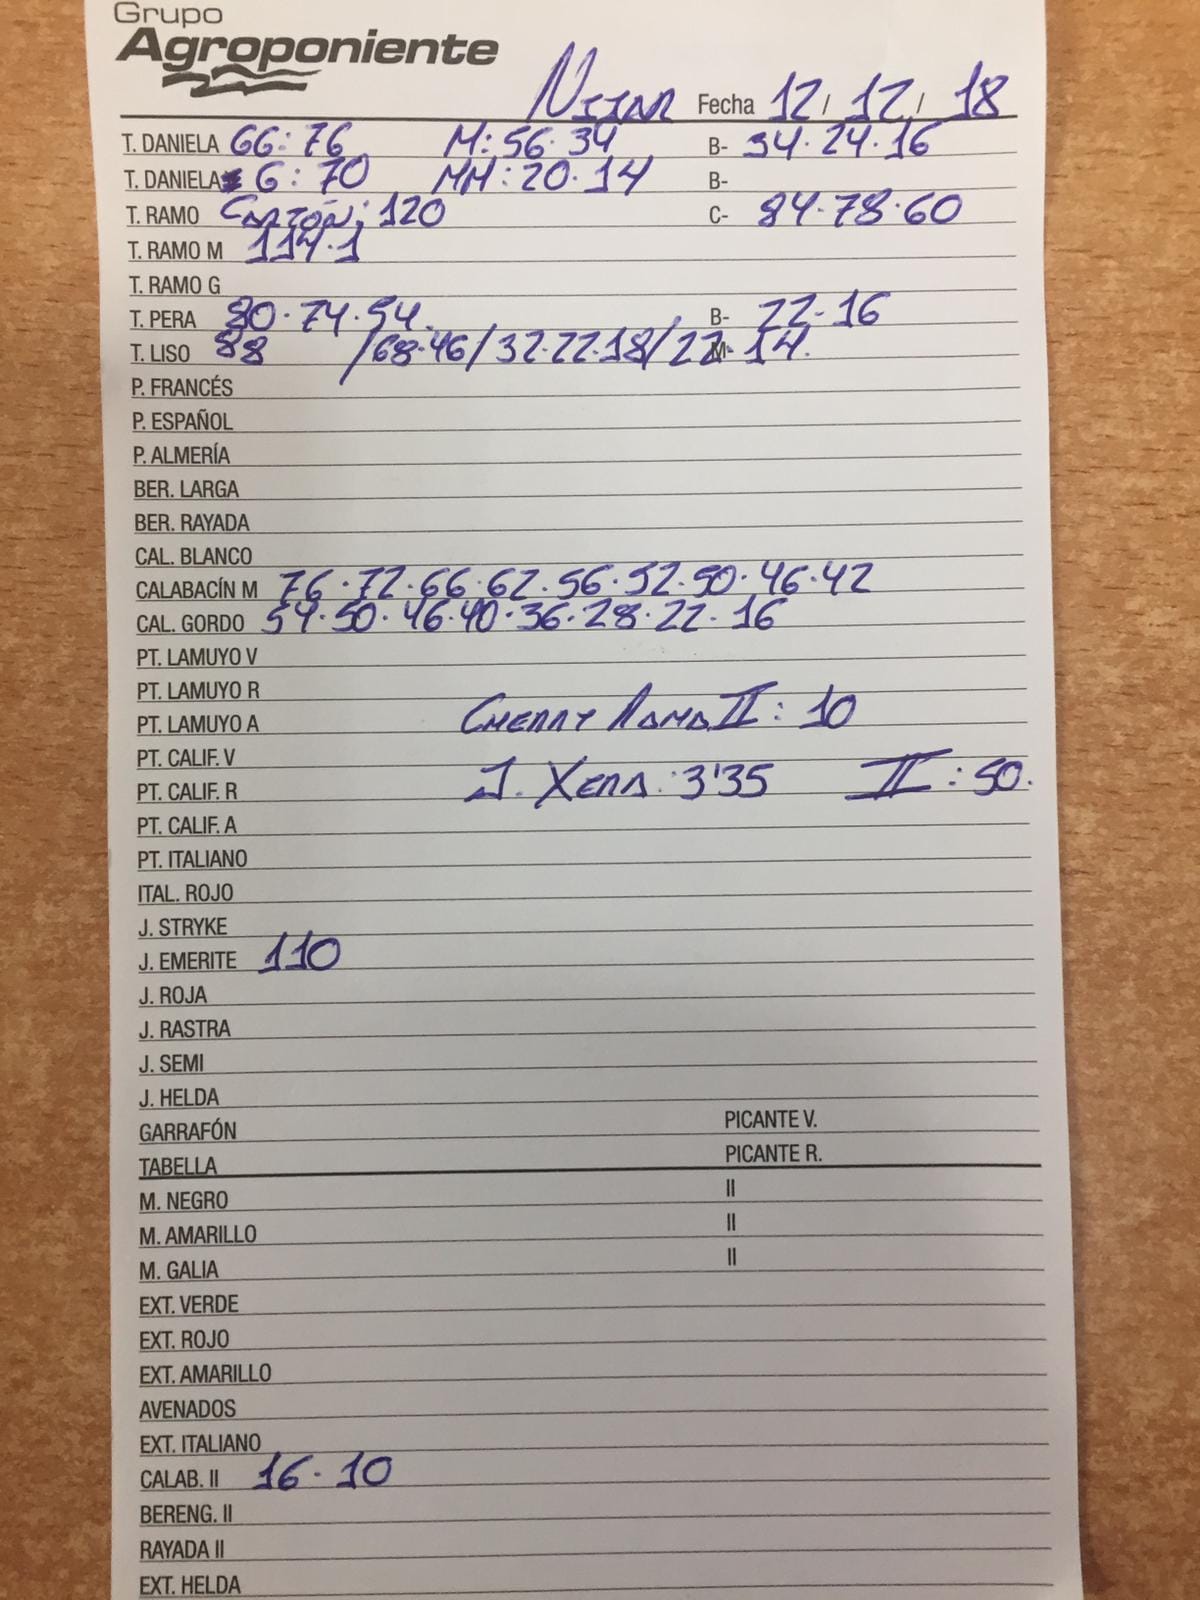 Grupo
Agroponiente
NIJAR Fecha 12/ 12/ 18
T. DANIELA GG: 76 M: 56· 34 B- 34· 24· 16
T. DANIELA G: 70 MM: 20· 14 B-
T. RAMO CARTÓN: 120 C- 84·78·60
T. RAMO M 114·1
T. RAMO G
T. PERA 80·74·54. B- 22-16
T. LISO 88 /68·46/32·22·18/22 M- 14.
P. FRANCÉS
P. ESPAÑOL
P. ALMERÍA
BER. LARGA
BER. RAYADA
CAL. BLANCO
CALABACÍN M 76·72·66·62·56·52·50·46·42
CAL. GORDO 54·50·46·40·36·28·22·16
PT. LAMUYO V
PT. LAMUYO R
PT. LAMUYO A CHERRY RAMA II: 10
PT. CALIF. V
PT. CALIF. R J. XERA: 3'35 II: 50.
PT. CALIF. A
PT. ITALIANO
ITAL. ROJO
J. STRYKE
J. EMERITE 110
J. ROJA
J. RASTRA
J. SEMI
J. HELDA
GARRAFÓN PICANTE V.
TABELLA PICANTE R.
M. NEGRO II
M. AMARILLO II
M. GALIA II
EXT. VERDE
EXT. ROJO
EXT. AMARILLO
AVENADOS
EXT. ITALIANO
CALAB. II 16· 10
BERENG. II
RAYADA II
EXT. HELDA